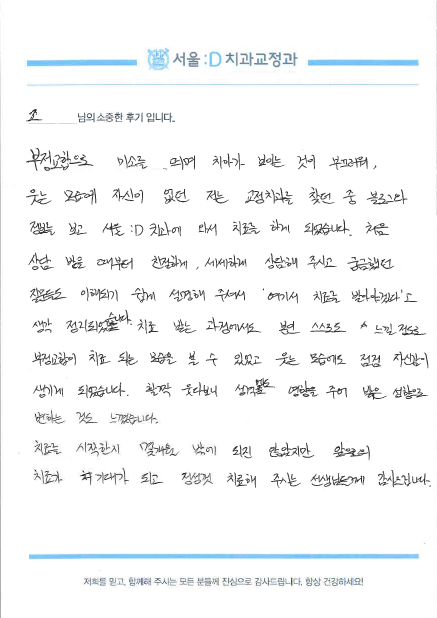 서울:D치과교정과
조 님의 소중한 후기 입니다.
부정교합으로 미소를 띄며 치아가 보이는 것이 부끄러워,
웃는 모습에 자신이 없던 저는 교정치과를 찾던 중 블로그와
정보를 보고 서울:D치과에 와서 치료를 하게 되었습니다. 처음
상담 받을 때부터 친절하게, 세세하게 상담해 주시고 궁금했던
질문들도 이해되기 쉽게 설명해 주셔서 '여기서 치료를 받아야겠다'고
생각 정리되었습니다. 치료 받는 과정에서도 본인 스스로도 느낄 정도로
부정교합이 치료 되는 모습을 볼 수 있었고 웃는 모습에도 점점 자신감이
생기게 되었습니다. 활짝 웃다보니 성격에도 영향을 주어 밝은 성향으로
변하는 것도 느꼈습니다.
치료를 시작한지 몇개월 밖에 되진 않았지만 앞으로의
치료가 더 기대가 되고 정성껏 치료해 주시는 선생님들께 감사드립니다.
저희를 믿고, 함께해 주시는 모든 분들께 진심으로 감사드립니다. 항상 건강하세요!